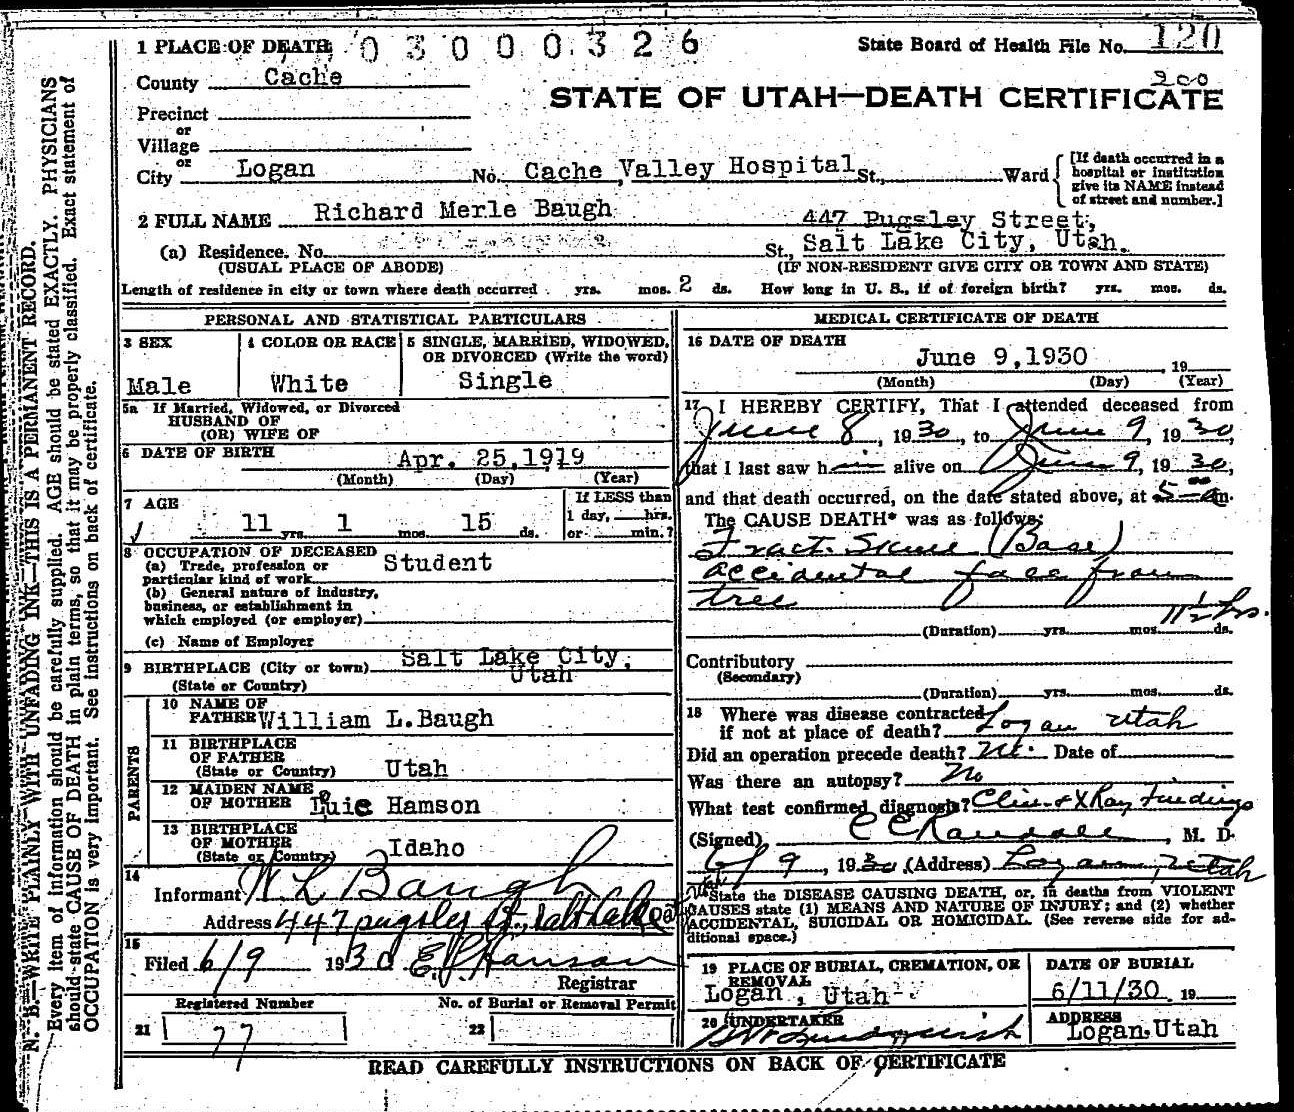 1 PLACE OF DEATH 03000326 State Board of Health File No. 120
County Cache
200
STATE OF UTAH—DEATH CERTIFICATE
Precinct
or
Village
or
City Logan No. Cache Valley Hospital St., Ward
[If death occurred in a hospital or institution give its NAME instead of street and number.]
2 FULL NAME Richard Merle Baugh
447 Pugsley Street,
(a) Residence. No. St., Salt Lake City, Utah.
(USUAL PLACE OF ABODE) (IF NON-RESIDENT GIVE CITY OR TOWN AND STATE)
Length of residence in city or town where death occurred yrs. mos. 2 ds. How long in U. S., if of foreign birth? yrs. mos. ds.
PERSONAL AND STATISTICAL PARTICULARS
3 SEX
Male
4 COLOR OR RACE
White
5 SINGLE, MARRIED, WIDOWED,
OR DIVORCED (Write the word)
Single
5a If Married, Widowed, or Divorced
HUSBAND OF
(OR) WIFE OF
6 DATE OF BIRTH Apr. 25,1919
(Month) (Day) (Year)
7 AGE
11 yrs. 1 mos. 15 ds.
If LESS than
1 day, hrs.
or min.?
8 OCCUPATION OF DECEASED
(a) Trade, profession or
particular kind of work Student
(b) General nature of industry,
business, or establishment in
which employed (or employer)
(c) Name of Employer
9 BIRTHPLACE (City or town) Salt Lake City,
(State or Country) Utah
PARENTS
10 NAME OF
FATHER William L.Baugh
11 BIRTHPLACE
OF FATHER
(State or Country) Utah
12 MAIDEN NAME
OF MOTHER Hamson
13 BIRTHPLACE
OF MOTHER
(State or Country) Idaho
14
Informant W. L. Baugh
Address 447 pugsley St., Salt Lake
15
Filed 6/9 1930 Hanson
Registrar
Registered Number
21 77
No. of Burial or Removal Permit
22
MEDICAL CERTIFICATE OF DEATH
16 DATE OF DEATH
June 9,1930 19
(Month) (Day) (Year)
17 I HEREBY CERTIFY, That I attended deceased from
June 8, 1930, to June 9, 1930,
that I last saw him alive on June 9, 1930,
and that death occurred, on the date stated above, at 5 am.
The CAUSE DEATH* was as follows:
Fract. Skull (Base)
accidental fall from
tree
11½ hrs.
(Duration) yrs. mos. ds.
Contributory
(Secondary)
(Duration) yrs. mos. ds.
18 Where was disease contracted
if not at place of death? Logan Utah
Did an operation precede death? No. Date of
Was there an autopsy? No
What test confirmed diagnosis? Clin. & XRay Findings
(Signed) C C Randall, M. D.
6/9, 1930 (Address) Logan, Utah
*State the DISEASE CAUSING DEATH, or, in deaths from VIOLENT
CAUSES state (1) MEANS AND NATURE OF INJURY; and (2) whether
ACCIDENTAL, SUICIDAL OR HOMICIDAL. (See reverse side for ad-
ditional space.)
19 PLACE OF BURIAL, CREMATION, OR
REMOVAL
Logan, Utah
DATE OF BURIAL
6/11/30 19
20 UNDERTAKER
Lundquist
ADDRESS
Logan,Utah
READ CAREFULLY INSTRUCTIONS ON BACK OF CERTIFICATE
N. B.—WRITE PLAINLY WITH UNFADING INK—THIS IS A PERMANENT RECORD.
Every item of information should be carefully supplied. AGE should be stated EXACTLY. PHYSICIANS
should state CAUSE OF DEATH in plain terms, so that it may be properly classified. Exact statement of
OCCUPATION is very important. See instructions on back of certificate.